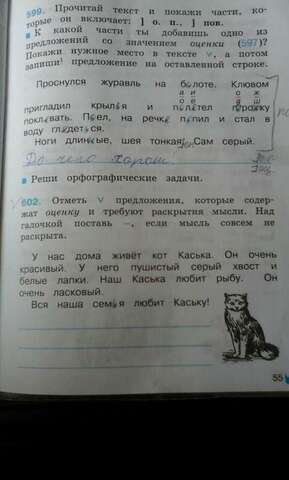 599. Прочитай текст и покажи части, ко-
торые он включает: ] о. п. ] пов.
К какой части ты добавишь одно из
предложений со значением оценки (597)?
Покажи нужное место в тексте v, а потом
запиши предложение на оставленной строке.
Проснулся журавль на болоте. Клювом
а и о ж
пригладил крылья и полетел горошку
о е а ш
поклевать. Поел, на речке попил и стал в
воду глядеться.
Ноги длинные, шея тонкая. Сам серый.
До чего хорош!
Реши орфографические задачи.
602. Отметь v предложения, которые содер-
жат оценку и требуют раскрытия мысли. Над
галочкой поставь –, если мысль совсем не
раскрыта.
У нас дома живёт кот Каська. Он очень
красивый. У него пушистый серый хвост и
белые лапки. Наш Каська любит рыбу. Он
очень ласковый.
Вся наша семья любит Каську!
55